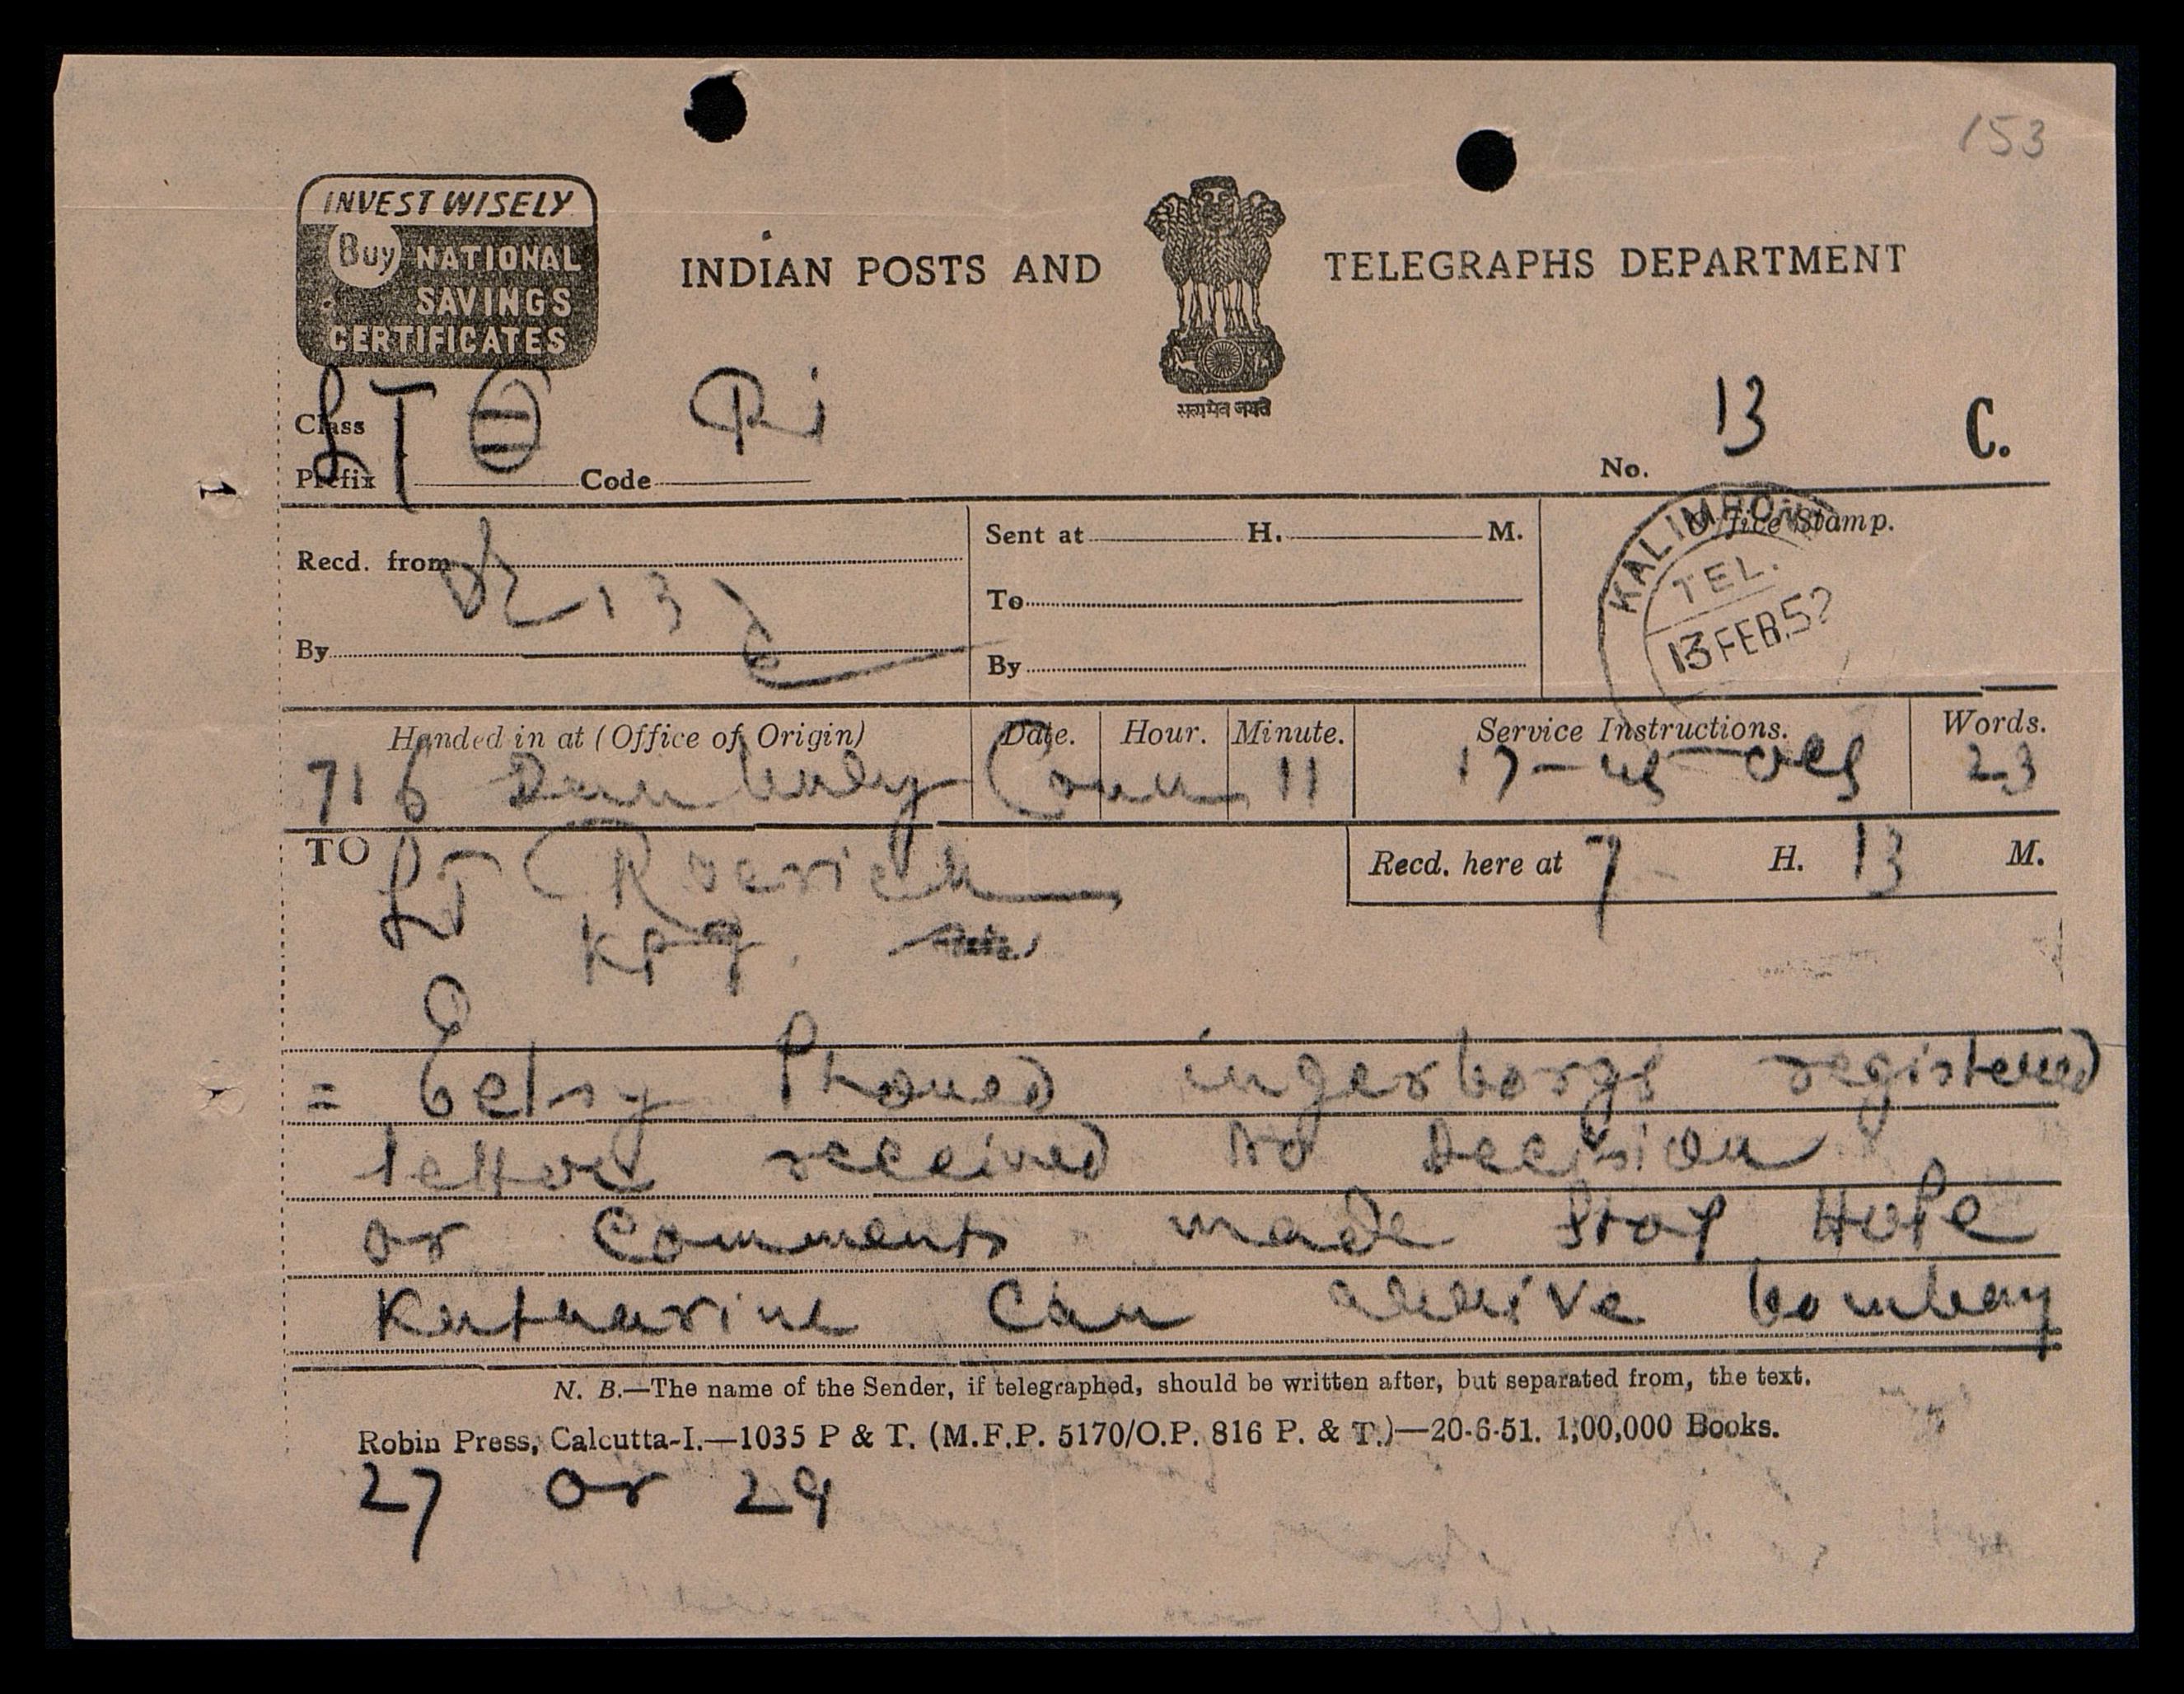 153
INVEST WISELY
Buy NATIONAL
SAVINGS
CERTIFICATES
INDIAN POSTS AND TELEGRAPHS DEPARTMENT
सत्यमेव जयते
LT Ri 13 C.
Class
Prefix Code No.
Recd. from
By
Sent at H. M.
To
By
Office Stamp.
KALIMPONG
TEL.
13 FEB.52
Handed in at (Office of Origin) Date. Hour. Minute. Service Instructions. Words.
716 Danbury Conn 11 23
TO LT Roerich
Recd. here at 7 H. 13 M.
Kpg
= betsy Phoned ingerborgs registered
letter received no decision
or comments made Stop Hope
Katharine can arrive bombay
N. B.—The name of the Sender, if telegraphed, should be written after, but separated from, the text.
Robin Press, Calcutta-I.—1035 P & T. (M.F.P. 5170/O.P. 816 P. & T.)—20-6-51. 1,00,000 Books.
27 or 29